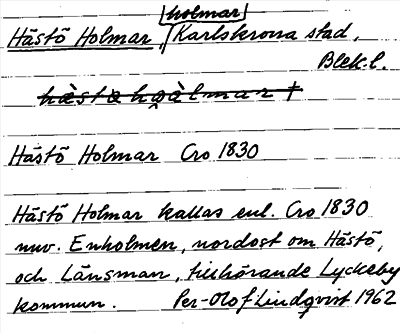 holmar
Hästö Holmar, Karlskrona stad,
Blek.l.
hästö hoàlmar †
Hästö Holmar Cro 1830
Hästö Holmar kallas enl. Cro 1830
nuv. Enholmen, nordost om Hästö,
och Länsman, tillhörande Lyckeby
kommun. Per-Olof Lindqvist 1962